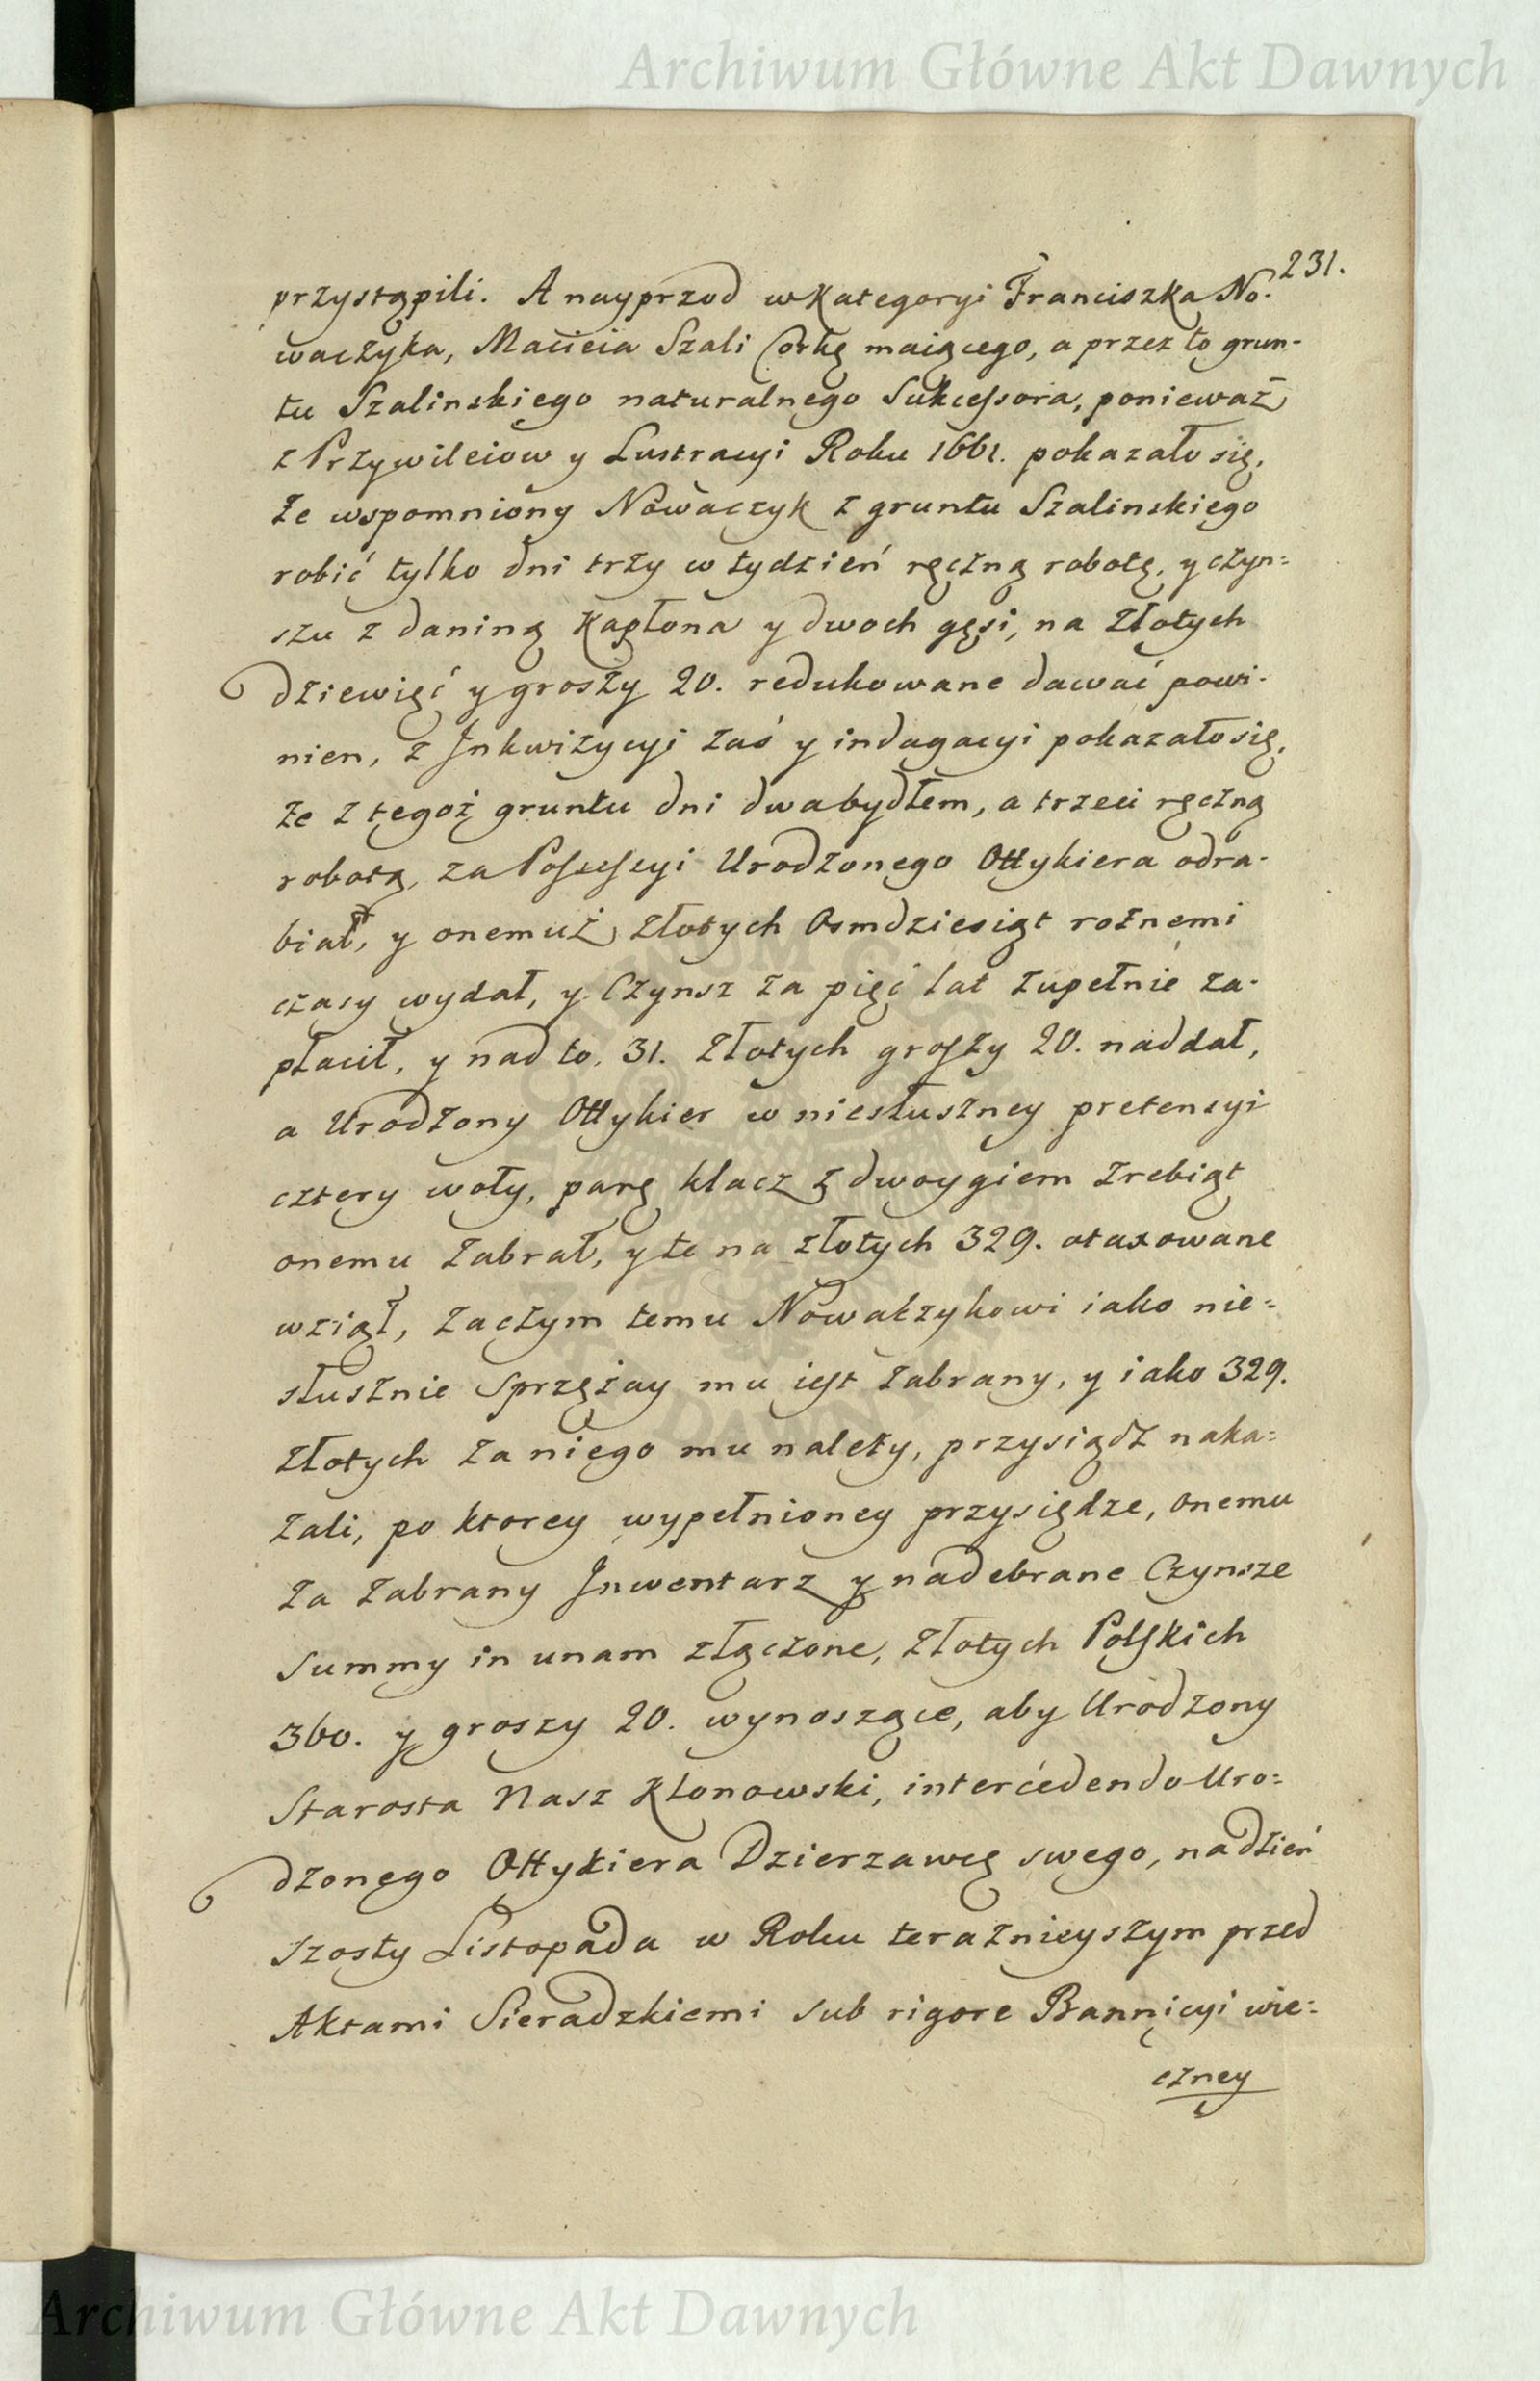 Archiwum Główne Akt Dawnych
231.
przystąpili. A nayprzod w Kategoryi Franciszka No-
waczyka, Macieia Szali Corkę maiącego, a przez to grun-
tu Szalinskiego naturalnego Sukcessora, ponieważ
z Przywileiow y Lustracyi Roku 1661. pokazało się,
że wspomniony Nowaczyk z gruntu Szalinskiego
robić tylko dni trzy w tydzień ręczną robotę, y czyn=
szu z daniną Kapłona y dwoch gęsi, na Złotych
dziewięć y groszy 20. redukowane dawać powi-
nien, z Inkwizycyi zaś y indagacyi pokazało się,
że z tegoż gruntu dni dwa bydłem, a trzeci ręczną
robotą, za Possessyi Urodzonego Ottykiera odra-
biał, y onemuż Złotych Osmdziesiąt rożnemi
czasy wydał, y Czynsz za pięć lat zupełnie za-
płacił, y nad to. 31. Złotych groszy 20. naddał,
a Urodzony Ottykier w niesłuszney pretensyi
cztery woły, parę klacz z dwoygiem zrebiąt
onemu zabrał, y te na złotych 329. otaxowane
wziął, zaczym temu Nowakzykowi iako nie=
słusznie Sprzężay mu iest zabrany, y iako 329.
złotych za niego mu należy, przysiądz naka=
zali, po ktorey wypełnioney przysiędze, onemu
za zabrany Inwentarz y nadebrane Czynsze
summy in unam złączone, Złotych Polskich
360. y groszy 20. wynoszące, aby Urodzony
Starosta Nasz Klonowski, intercedendo Uro=
dzonego Ottykiera Dzierzawcę swego, na dzień
szosty Listopada w Roku teraznieyszym przed
Aktami Sieradzkiemi sub rigore Bannicyi wie=
czney
Archiwum Główne Akt Dawnych